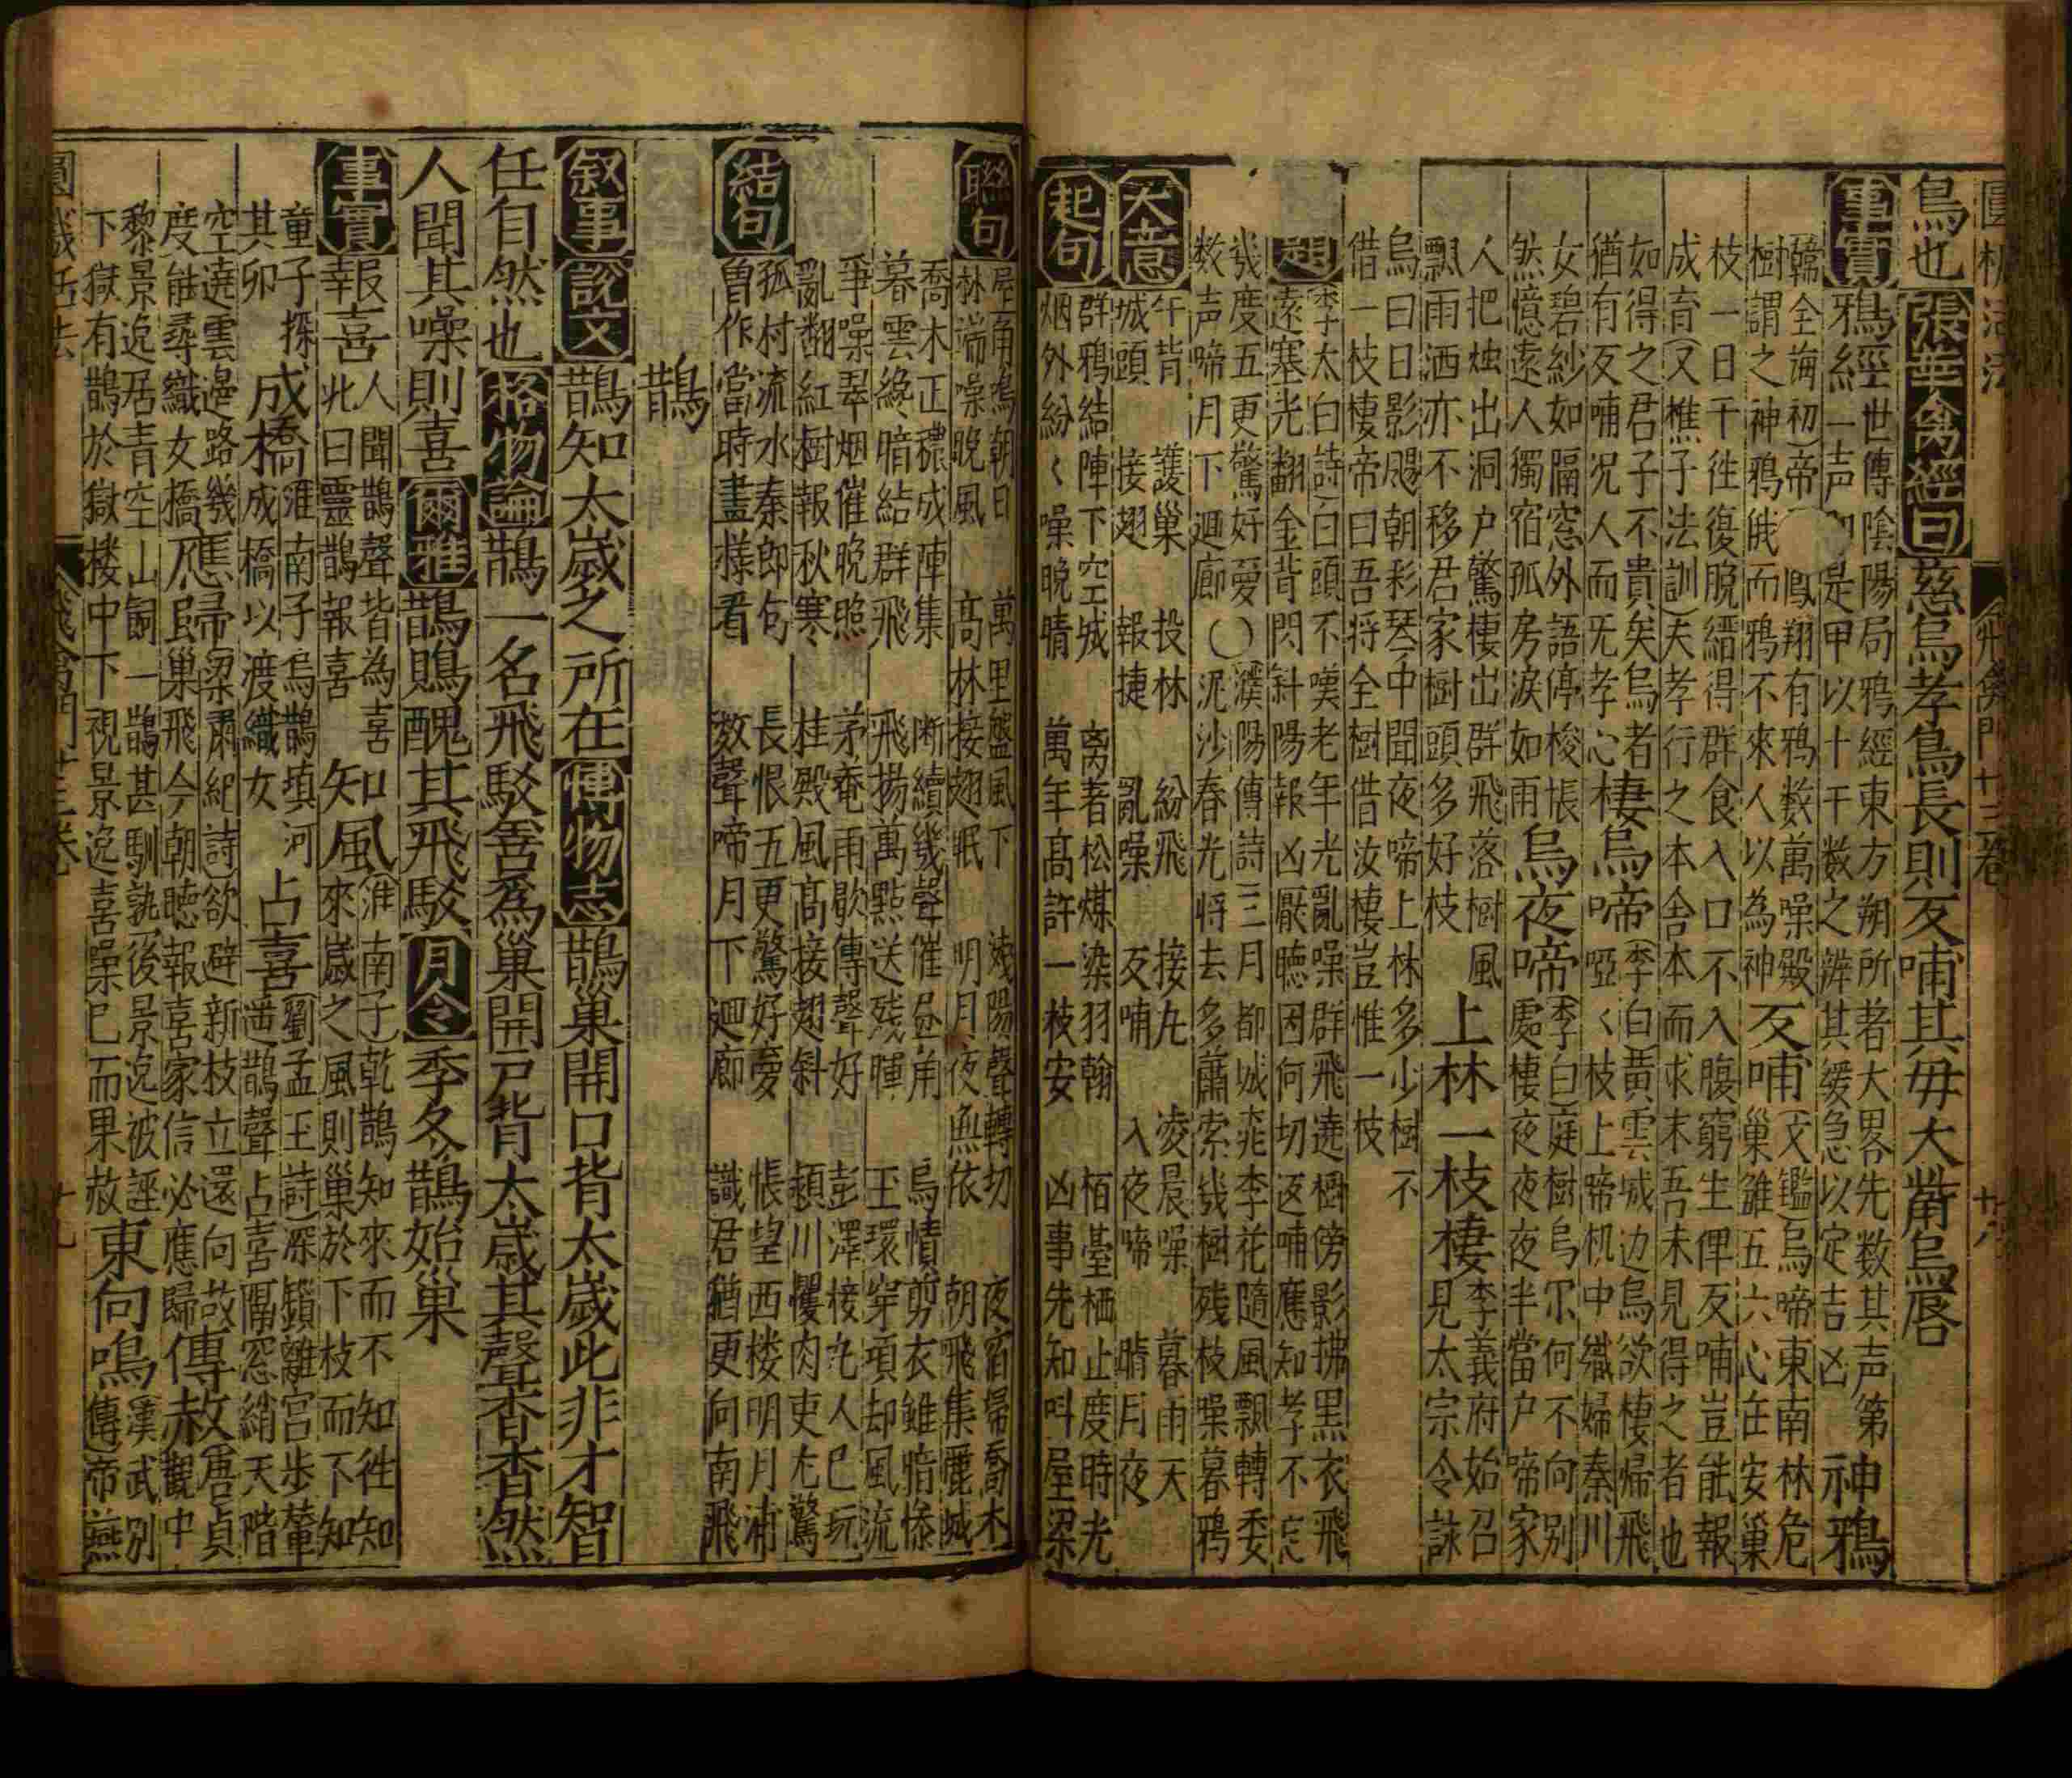 鳥也 張華禽經曰 慈烏孝鳥長則反哺其母大觜烏唇
事實 鴉經 世傳陰陽局鴉經東方朔所著大畧先数其声第
一声 是甲以十干数之辨其缓急以定吉凶 神鴉
樹謂之神鴉俄而鴉不來人以為神 反哺 (文鑑)烏啼東南林危
巢雛五六心在安巢
枝一日千徃復脫繻得群食入口不入腹窮生俾反哺豈能報
成育(又樵子法訓)夫孝行之本舎本而求末吾未見得之者也
如得之君子不貴矣烏者
猶有反哺况人而旡孝心 棲烏啼 (李白)黄雲城边烏欲棲歸飛
啞〱枝上啼机中織婦秦川
女碧紗如隔窓外語停梭悵
然憶遠人獨宿孤房淚如雨 烏夜啼 (李白)庭樹烏尔何不向别
處棲夜夜夜半當户啼家
人把烛出洞户驚棲出群飛落樹風
飄雨洒亦不移君家樹頭多好枝 上林一枝棲 李義府始召
見太宗令詠
烏曰日影颺朝彩琴中聞夜啼上林多少樹不
借一枝棲帝曰吾将全樹借汝棲豈惟一枝
題 (李太白詩)白頭不嘆老年光亂噪群飛遶樹傍影拂黒衣飛
遠塞光翻金背閃斜陽報凶厭聴因何切返哺應知孝不忘
㡬度五更驚好愛〇濮陽傳詩三月都城桃李花隨風飄轉委
数声啼月下廻廊 泥沙春光将去多蕭索㡬樹残枝噪暮鴉
大意 午背 護巢 投林 紛飛 接九 凌晨噪 暮雨天
城頭 接翅 報捷 亂噪 反哺 入夜啼 晴月夜
起句 群鴉結陣下空城 离者松煤染羽翰 栢臺栖止度時光
烟外紛〱噪晚晴 萬年髙許一枝安 凶事先知叫屋梁
聯句 屋角鳴朝日 萬里盤風下 残陽聲轉切 夜宿歸喬木
林端噪晚風 髙林接翅眠 明月夜無依 朝飛集麗城
喬木正穠成陣集 断續㡬聲催昼角 烏幘剪衣雖暗慘
暮雲絶暗結群飛 飛揚萬點送残暉 玉環穿項却風流
爭噪翠烟催晚照 茅菴雨歇傳聲好 彭澤接丸人已玩
亂翻紅樹報秋寒 桂殿風髙接翅斜 頴川攫肉吏尤驚
結句 孤村流水秦郎句 長恨五更驚好夢 悵望西楼明月浦
曽作當時畫樣看 数聲啼月下廻廊 識君猶更向南飛
鵲
叙事 說文 鵲知太歲之所在 博物志 鵲巢開口背太歲此非才智
任自然也 格物論 鵲一名飛駁善爲巢開戸背太歲其聲杳杳然
人聞其噪則喜 爾雅 鵲鵙醜其飛駁 月令 季冬鵲始巢
事實 報喜 人聞鵲聲皆為喜
北曰靈鵲報喜 知風 (淮南子)乾鵲知來而不知徃知
來歲之風則巢於下枝而下知
童子探
其卵 成橋 淮南子烏鵲填河
成橋以渡織女 占喜 (劉孟玉詩)深鎖離宫歩輦
遊鵲聲占喜隔窓綃天階
空遶雲邉路㡬
度能尋織女橋 應歸 (梁肅紀詩)欲避新枝立還向故
民巢飛今朝聴報喜家信必應歸 傳赦 唐貞觀中
黎景逸居青空山飼一鵲甚馴孰後景逸被誣
下獄有鵲於獄楼中下視景逸喜噪已而果赦 東向鳴 (漢武别
傳)帝燕